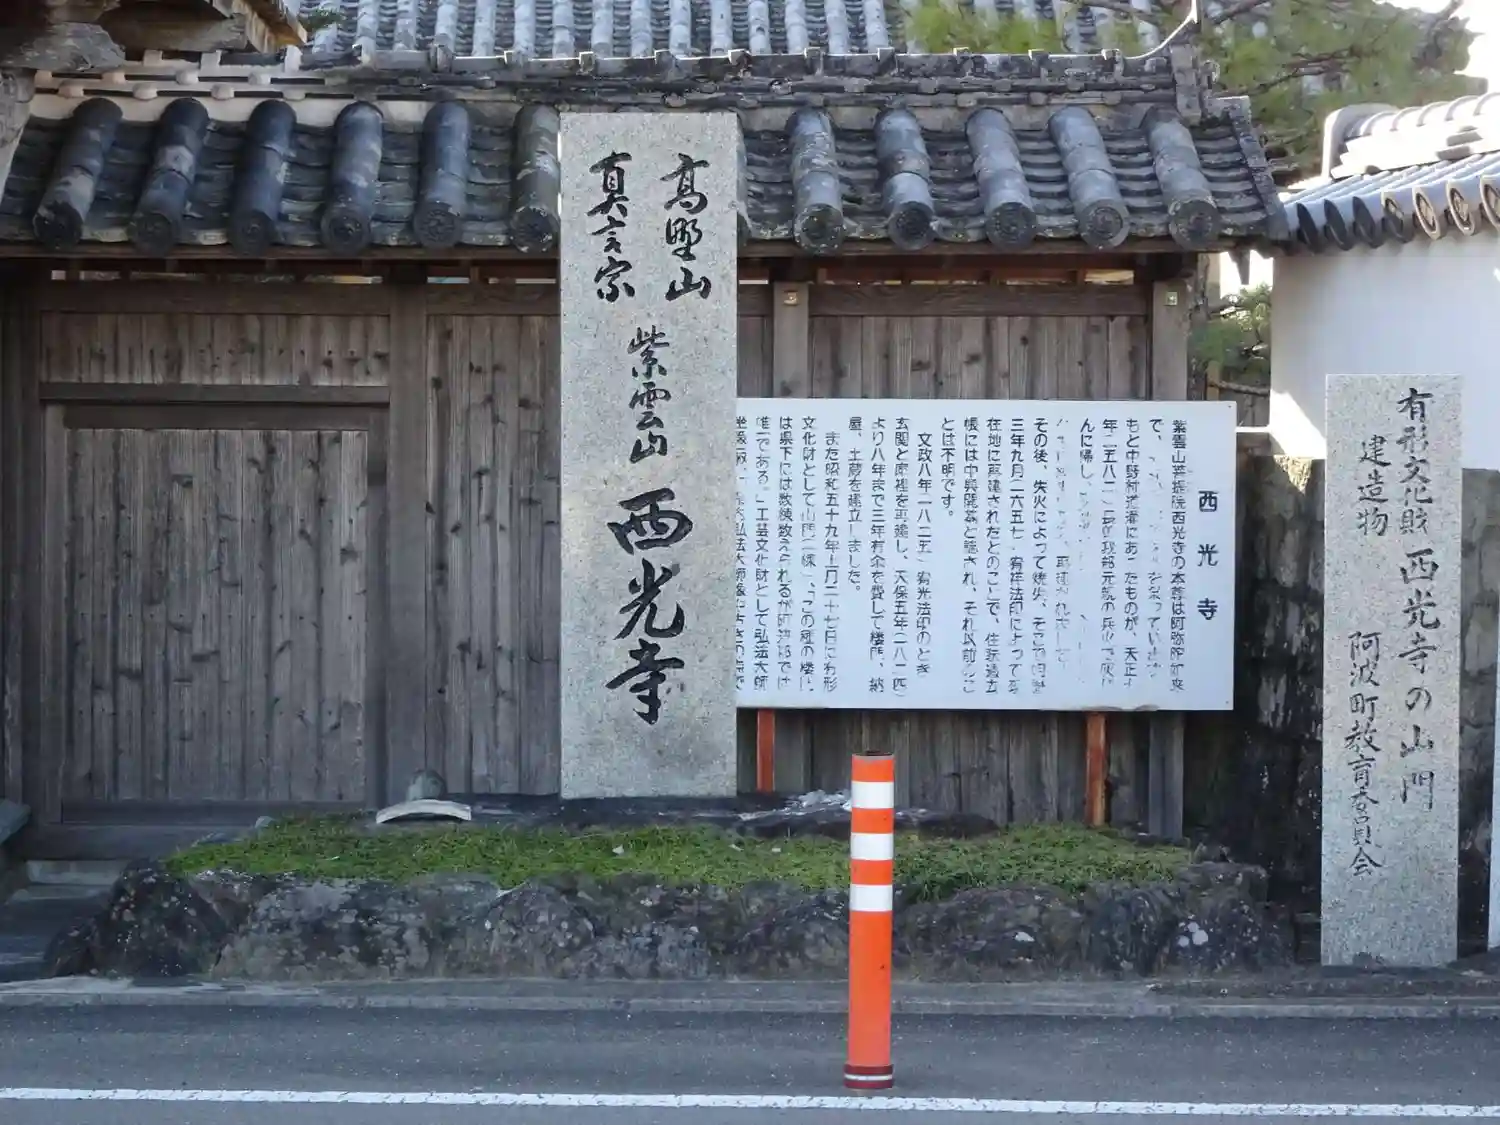 高野山
真言宗
紫雲山
西光寺
西光寺
紫雲山菩提院西光寺の本尊は阿弥陀如来
で、
もと中野村道溝にあったものが、天正十
年(一五八二)長曽我部元親の兵火で灰じ
んに帰し、
その後、失火によって焼失、そこで明暦
三年九月(一六五七)宥祥法印によって現
在地に再建されたとのことで、住職過去
帳には中興開基と誌され、それ以前のこ
とは不明です。
文政八年(一八二五)宥光法印のとき
玄関と庫裡を再建し、天保五年(一八三四)
より八年まで三年有余を費して楼門、納
屋、土蔵を建立しました。
また昭和五十九年七月二十七日に有形
文化財として山門(一棟)、「この種の楼門
は県下には数棟数えられるが阿波郡では
唯一である。」工芸文化財として弘法大師
有形文化財 西光寺の山門
建造物
阿波町教育委員会